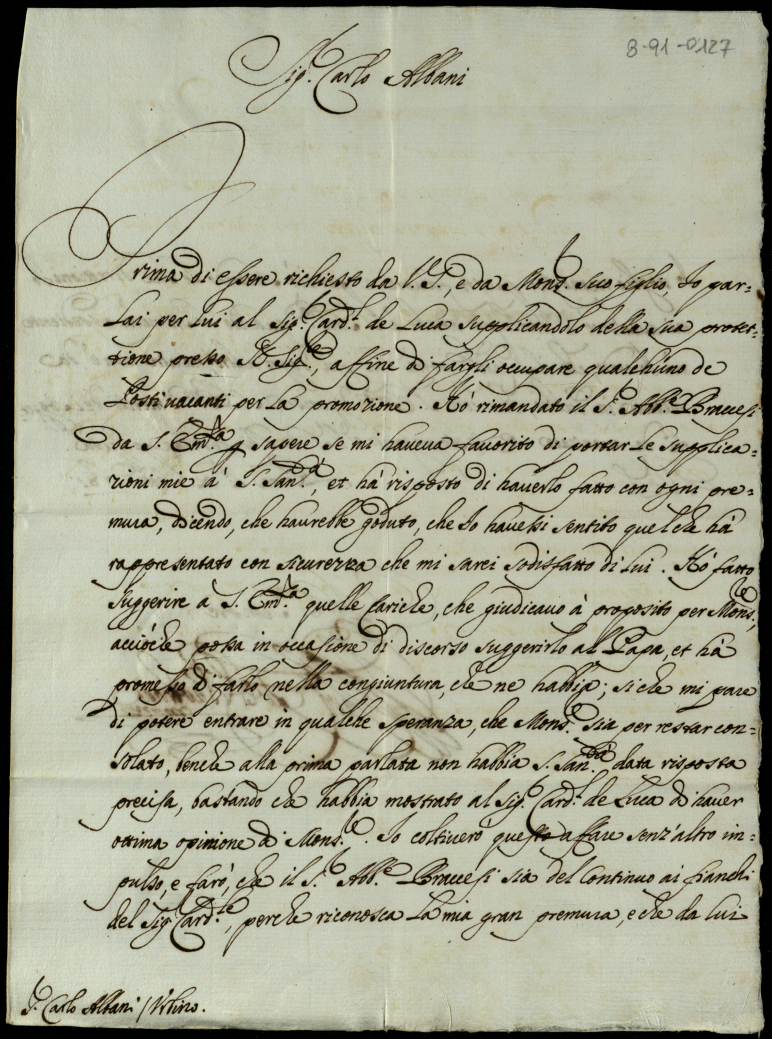 8-91-0127
Sig.r Carlo Albani
Prima di essere richiesto da V.S., e da Mons.r suo figlio, Io par=
lai per lui al Sig.r Card.l de Luca supplicandolo della sua protet=
tione presso N. Sig.re, affine di fargli occupare qualchuno de
Posti vacanti per la promozione. Hò rimandato il S.r Abb.e Braccesi
da S. Em.za p sapere se mi haveva favorito di portar le supplica=
zioni mie à S. San.tà, et hà risposto di haverlo fatto con ogni pre=
mura, dicendo, che haurebbe goduto, che Io havessi sentito quel che hà
rappresentato con sicurezza che mi sarei sodisfatto di lui. Hò fatto
suggerire a S. Em.za quelle cariche, che giudicavo à proposito per Mons.re,
acciòche possa in occasione di discorso suggerirlo al Papa, et hà
promesso di farlo nella congiuntura, che ne habbia; siche mi pare
di potere entrare in qualche speranza, che Mons.re sia per restar con=
solato, benche alla prima parlata non habbia S. San.tà data risposta
precisa, bastando che habbia mostrato al Sig.r Card.l de Luca di haver
ottima opinione di Mons.re. Io coltiverò questo affare senz'altro im=
pulso, e farò, che il S.r Abb.e Braccesi sia del continuo ai fianchi
del Sig.r Card.le, perche riconosca la mia gran premura, e che da lui
S.r Carlo Albani / Urbino.